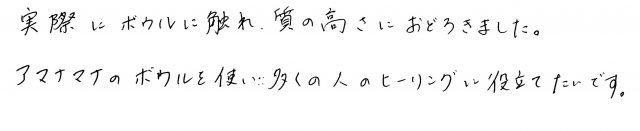 実際にボウルに触れ、質の高さにおどろきました。
アマナマナのボウルを使い、多くの人のヒーリングに役立てたいです。